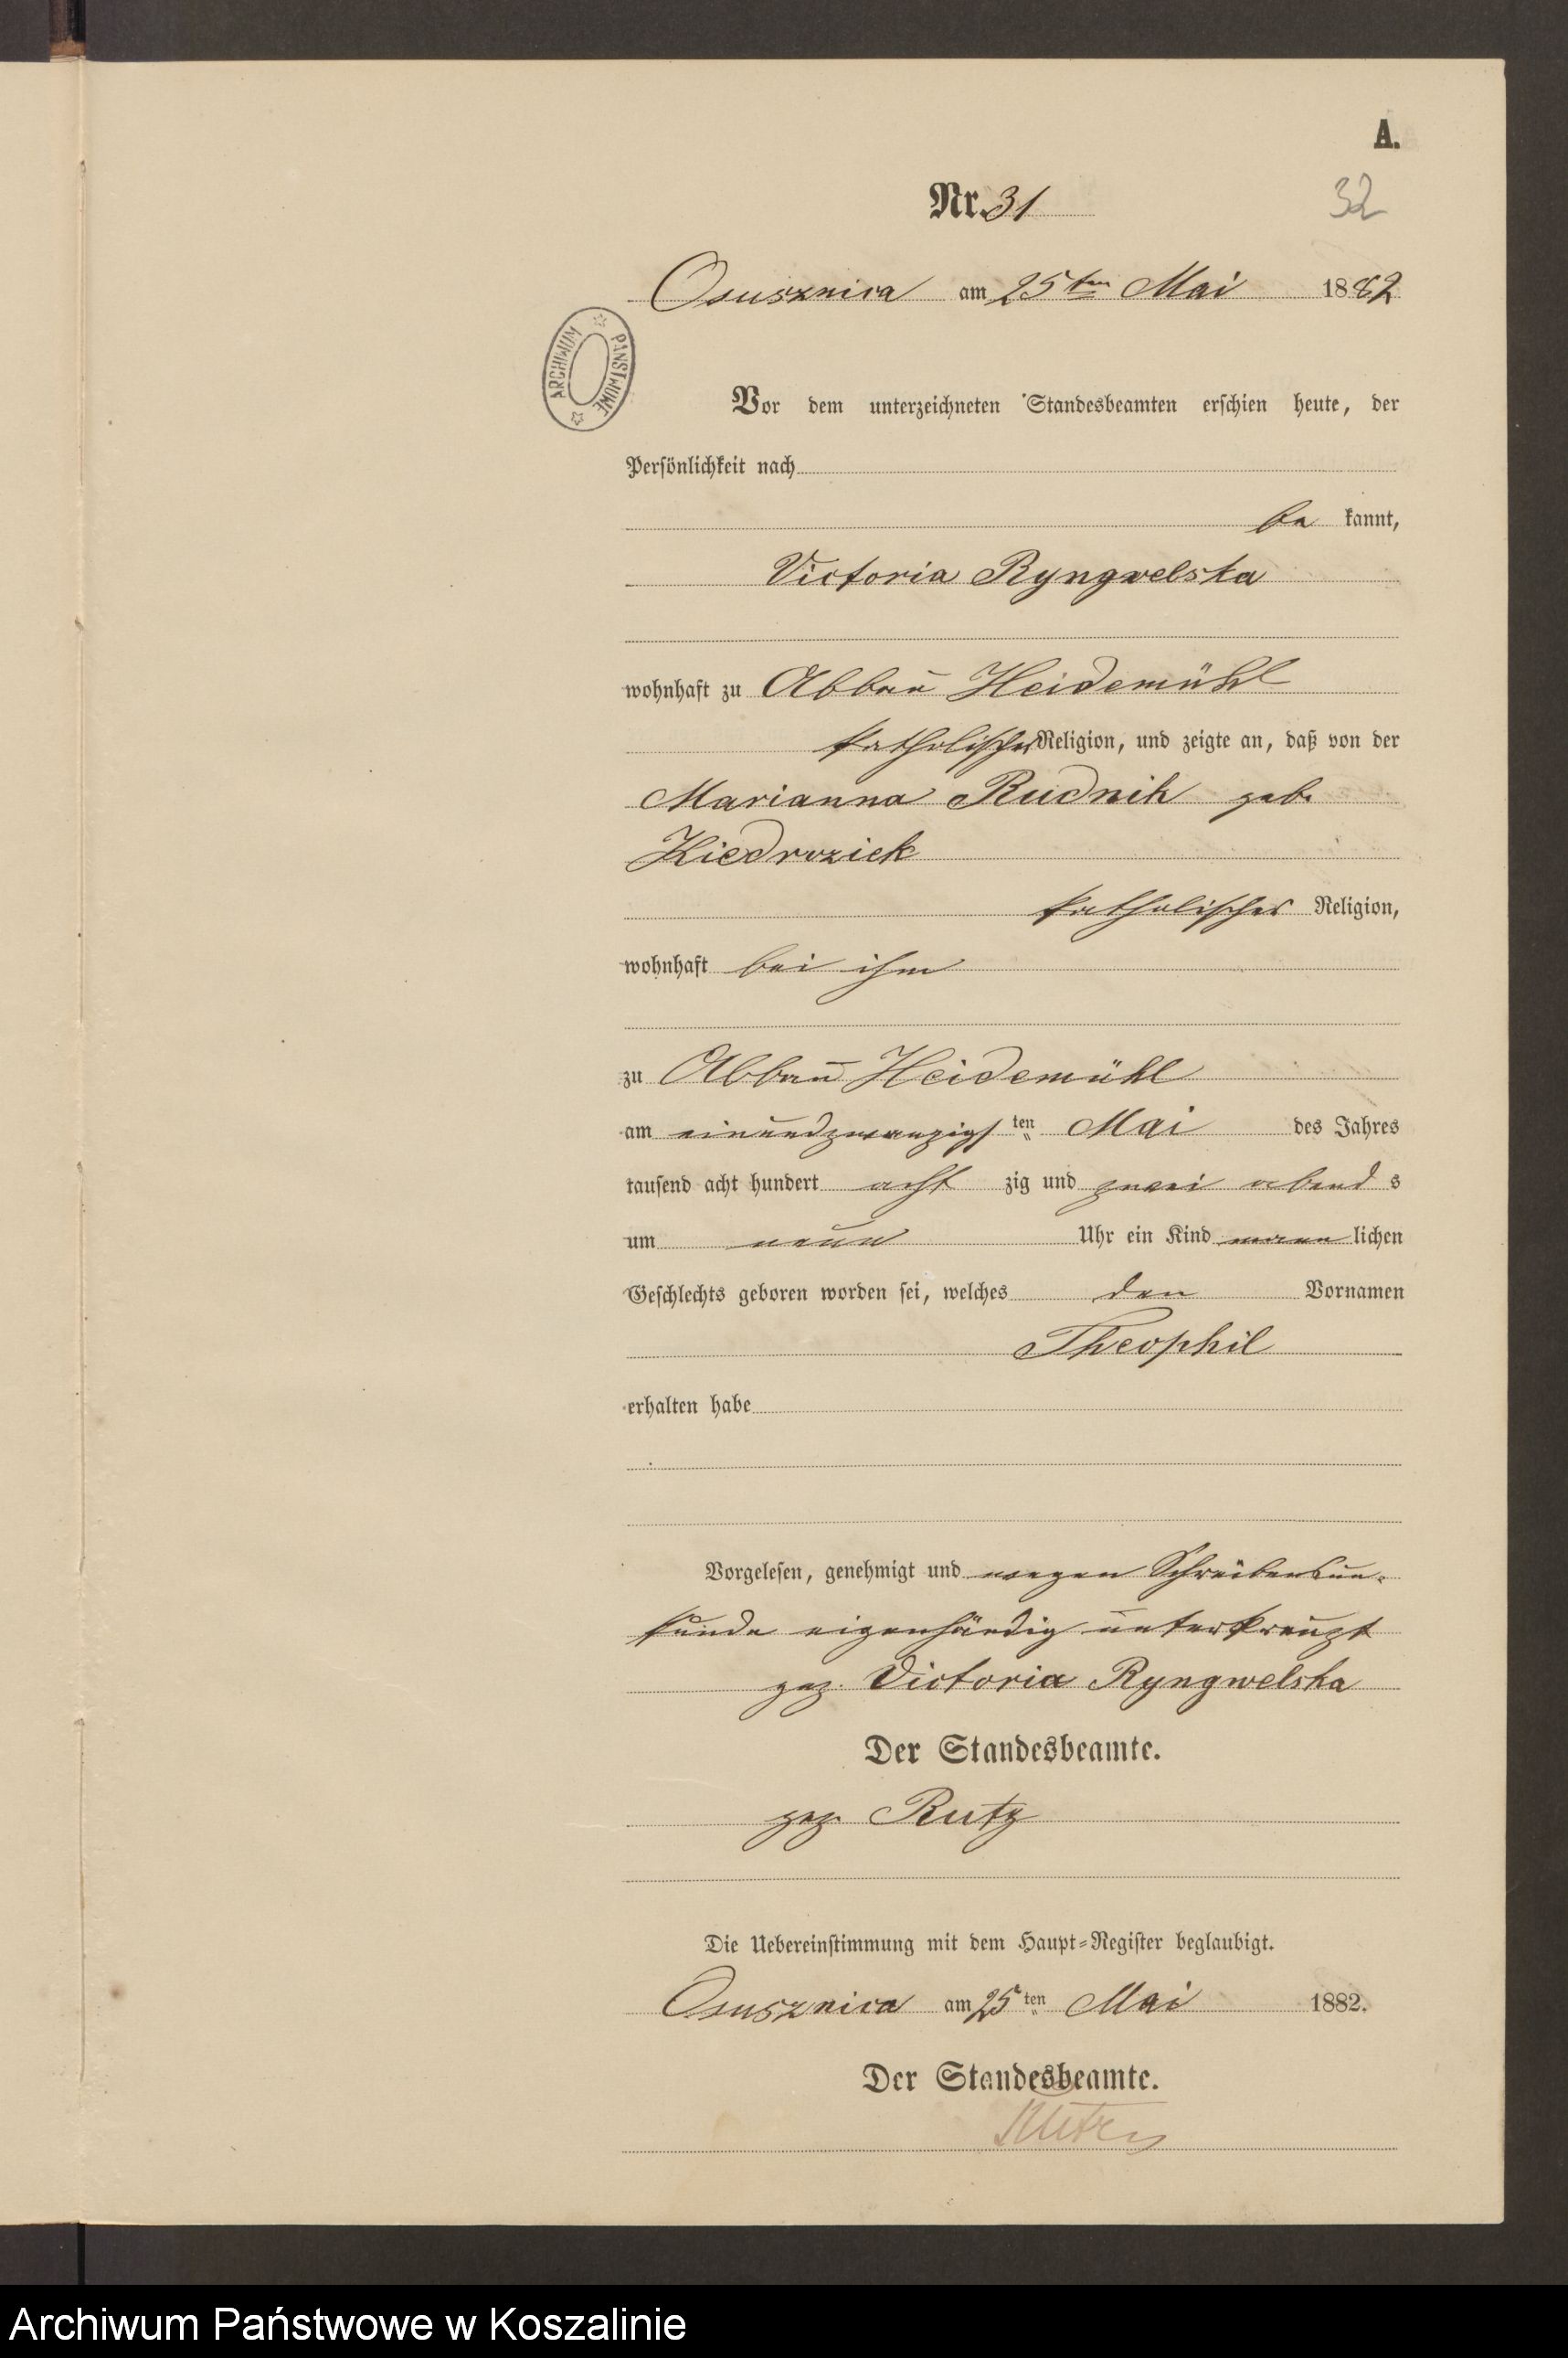 A.
Nr. 31
32
Osusznica am 25ten Mai 1882
ARCHIWUM PAŃSTWOWE
Vor dem unterzeichneten Standesbeamten erschien heute, der
Persönlichkeit nach
be kannt,
Victoria Ryngwelska
wohnhaft zu Abbau Heidemühl
katholischer Religion, und zeigte an, daß von der
Marianna Rudnik geb.
Kiedrozick
katholischer Religion,
wohnhaft bei ihm
zu Abbau Heidemühl
am einundzwanzigsten Mai des Jahres
tausend acht hundert acht zig und zwei abend s
um neun Uhr ein Kind männ lichen
Geschlechts geboren worden sei, welches den Vornamen
Theophil
erhalten habe
Vorgelesen, genehmigt und wegen Schreibensun-
kunde eigenhändig unterkreuzt
gez. Victoria Ryngwelska
Der Standesbeamte.
gez. Rutz
Die Uebereinstimmung mit dem Haupt-Register beglaubigt.
Osusznica am 25ten Mai 1882.
Der Standesbeamte.
Rutz
Archiwum Państwowe w Koszalinie